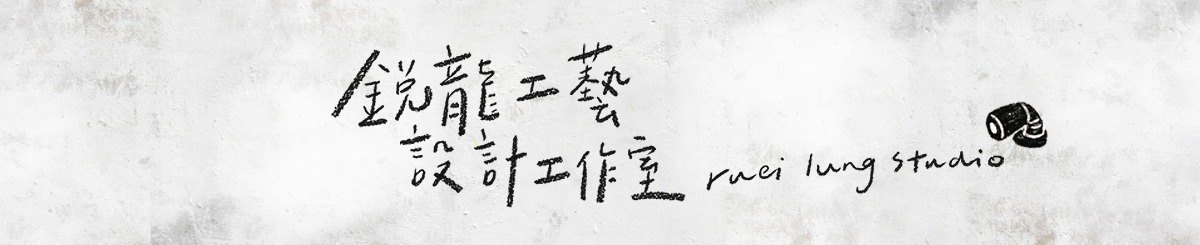 銳龍工藝
設計工作室
ruei lung studio